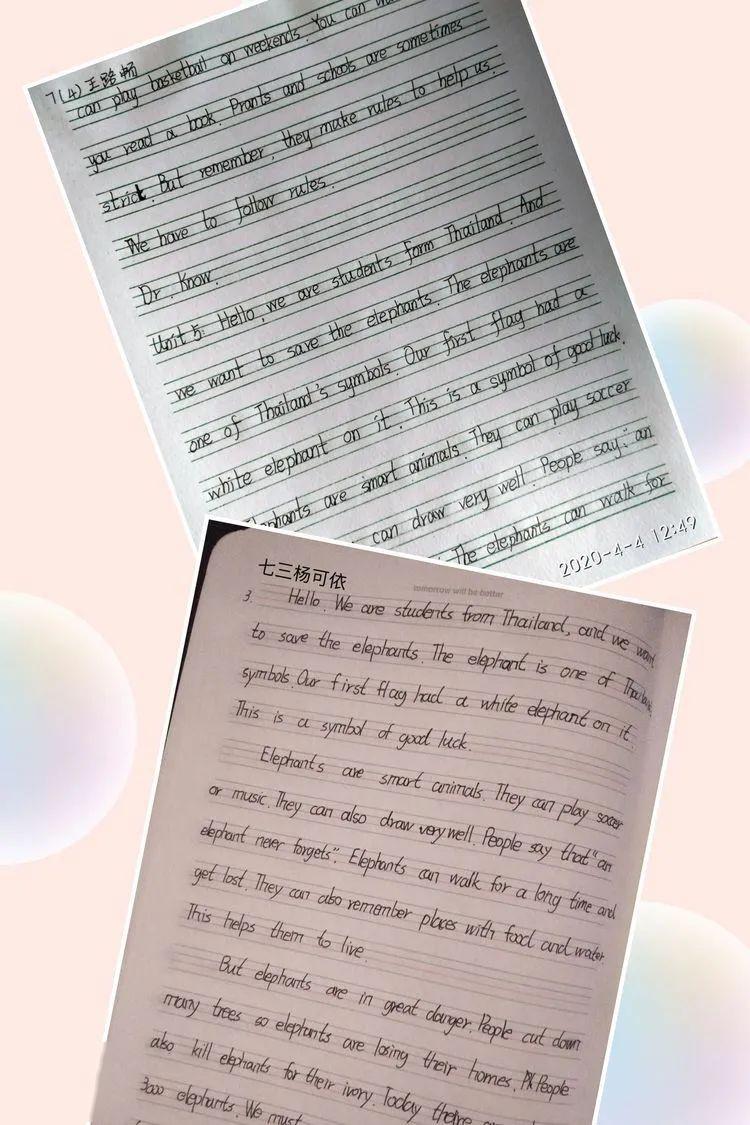 7(4)王路畅
can play basketball on weekends. You can
you read a book. Prants and schools are sometimes
strict. But remember, they make rules to help us.
We have to follow rules.
Dr. Know.
Unit 5: Hello, we are students form Thailand. And
we want to save the elephants. The elephants are
one of Thailand's symbols. Our first flag had a
white elephant on it. This is a symbol of good luck.
are smart animals. They can play soccer
can draw very well. People say: an
The elephants can walk for
2020-4-4 12:49
七三杨可依
tomorrow will be better
3. Hello. We are students from Thailand, and we want
to save the elephants. The elephant is one of
symbols. Our first flag had a white elephant on it.
This is a symbol of good luck.
Elephants are smart animals. They can play soccer
or music. They can also draw very well. People say that "an
elephant never forgets". Elephants can walk for a long time and
get lost. They can also remember places with food and water.
This helps them to live.
But elephants are in great danger. People cut down
many trees so elephants are losing their homes. People
also kill elephants for their ivory. Today
3000 elephants. We must